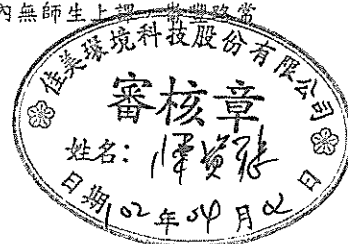 內無師生上課
佳美環境科技股份有限公司
審核章
姓名：
日期102年04月02日